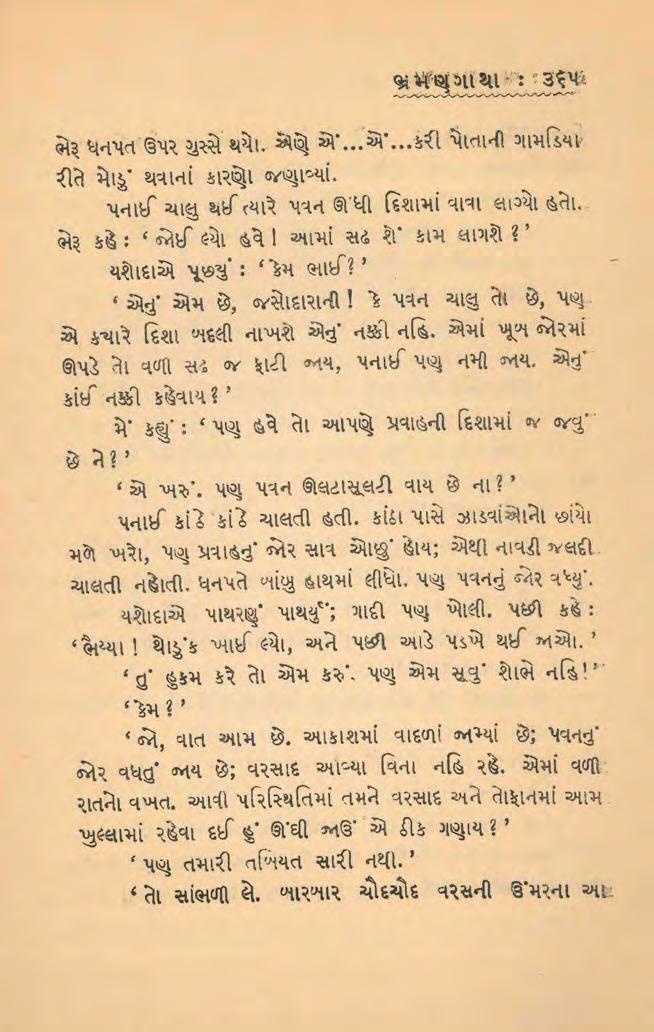 ભ્રમણગાથા : : ૩૬૫
ભેરૂ ધનપત ઉપર ગુસ્સે થયો. એણે એં...એં...કરી પોતાની ગામડિયા
રીતે મોડું થવાનાં કારણો જણાવ્યાં.
પનાઈ ચાલુ થઈ ત્યારે પવન ઊંધી દિશામાં વાવા લાગ્યો હતો.
ભેરૂ કહે : ‘ જોઈ લ્યો હવે ! આમાં સઢ શેં કામ લાગશે ? ’
યશોદાએ પૂછ્યું : ‘ કેમ ભાઈ ? ’
‘ એનું એમ છે, જસોદારાની ! કે પવન ચાલુ તો છે, પણ
એ ક્યારે દિશા બદલી નાખશે એનું નક્કી નહિ. એમાં ખૂબ જોરમાં
ઊપડે તો વળી સઢ જ ફાટી જાય, પનાઈ પણ નમી જાય. એનું
કાંઈ નક્કી કહેવાય ? ’
મેં કહ્યું : ‘ પણ હવે તો આપણે પ્રવાહની દિશામાં જ જવું
છે ને ? ’
‘ એ ખરું. પણ પવન ઊલટાસૂલટી વાય છે ના ? ’
પનાઈ કાંઠે કાંઠે ચાલતી હતી. કાંઠા પાસે ઝાડવાંઓનો છાંયો
મળે ખરો, પણ પ્રવાહનું જોર સાવ ઓછું હોય; એથી નાવડી જલદી
ચાલતી નહોતી. ધનપતે બાંબુ હાથમાં લીધો. પણ પવનનું જોર વધ્યું.
યશોદાએ પાથરણું પાથર્યું; ગાદી પણ ખોલી. પછી કહે :
‘ ભૈય્યા ! થોડુંક ખાઈ લ્યો, અને પછી આડે પડખે થઈ જાઓ. ’
‘ તું હુકમ કરે તો એમ કરું. પણ એમ સૂવું શોભે નહિ! ’
‘ કેમ ? ’
‘ જો, વાત આમ છે. આકાશમાં વાદળાં જામ્યાં છે; પવનનું
જોર વધતું જાય છે; વરસાદ આવ્યા વિના નહિ રહે. એમાં વળી
રાતનો વખત. આવી પરિસ્થિતિમાં તમને વરસાદ અને તોફાનમાં આમ
ખુલ્લામાં રહેવા દઈ હું ઊંઘી જાઉં એ ઠીક ગણાય ? ’
‘ પણ તમારી તબિયત સારી નથી. ’
‘ તો સાંભળી લે. બારબાર ચૌદચૌદ વરસની ઉંમરના આ